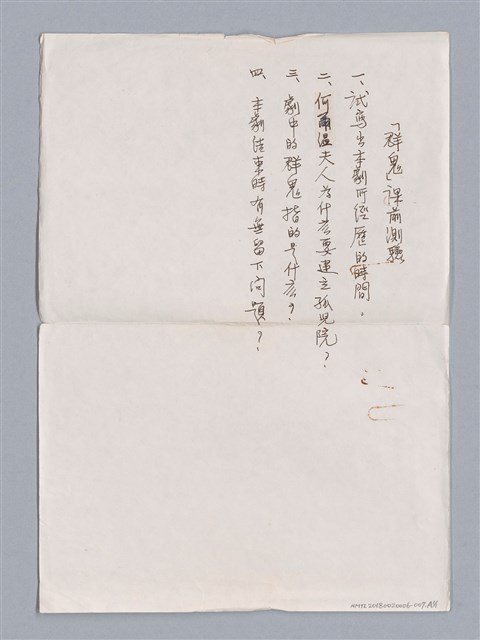 「群鬼」課前測驗
一、試寫出本劇所經歷的時間。
二、何爾溫夫人為什么要建立孤児院？
三、劇中的群鬼指的是什么？
四、本劇結束時有無留下問題？